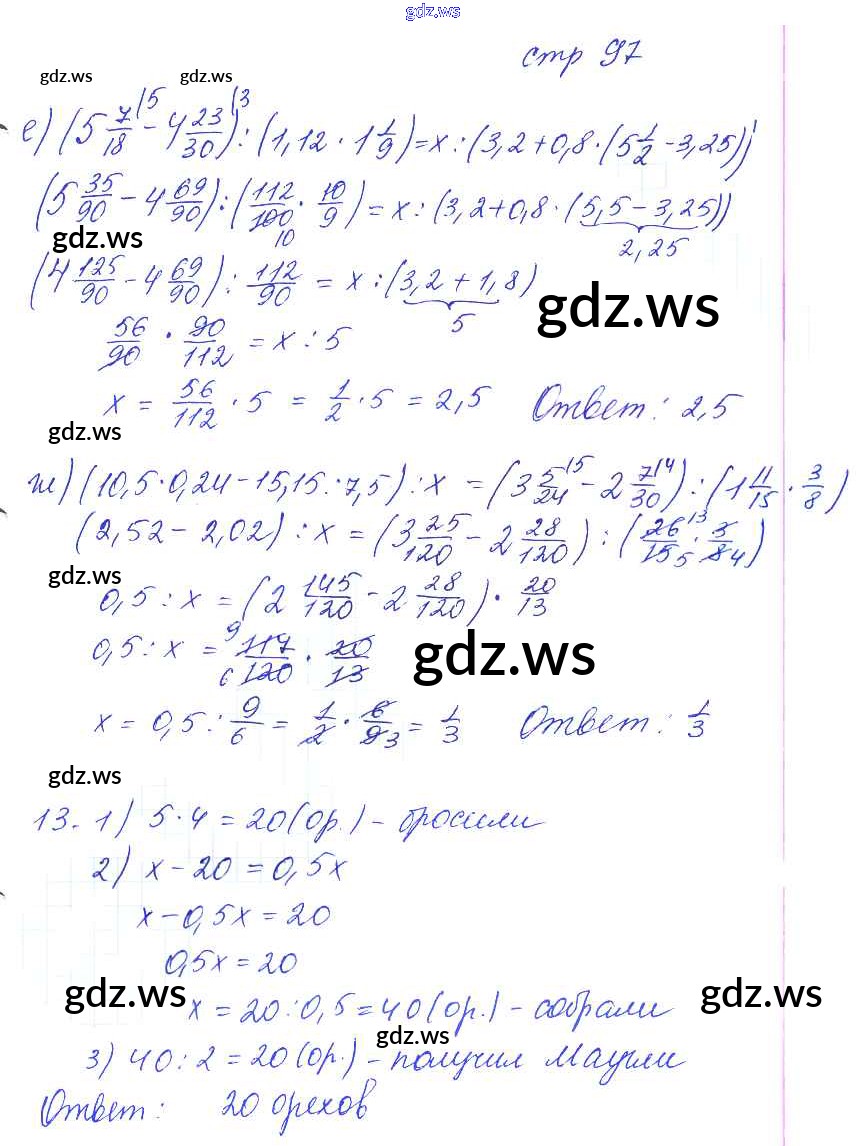 gdz.ws
стр 97
gdz.ws gdz.ws
е) (5 7/18 |5 - 4 23/30 |3) : (1,12 · 1 1/9) = x : (3,2 + 0,8 · (5 1/2 - 3,25))
(5 35/90 - 4 69/90) : (112/100 10 · 10/9) = x : (3,2 + 0,8 · (5,5 - 3,25))
2,25
gdz.ws
(4 125/90 - 4 69/90) : 112/90 = x : (3,2 + 1,8)
5
gdz.ws
56/90 · 90/112 = x : 5
x = 56/112 · 5 = 1/2 · 5 = 2,5 Ответ: 2,5
gdz.ws
ж) (10,5 · 0,24 - 15,15 : 7,5) : x = (3 5/24 |5 - 2 7/30 |4) : (1 11/15 · 3/8)
(2,52 - 2,02) : x = (3 25/120 - 2 28/120) : (26/15 13 5 · 3/8 4)
gdz.ws
0,5 : x = (2 145/120 - 2 28/120) · 20/13
0,5 : x = 9 117/6 120 · 20/13
gdz.ws
x = 0,5 : 9/6 = 1/2 · 6/9 3 = 1/3 Ответ: 1/3
gdz.ws
13. 1) 5 · 4 = 20 (ор.) - бросили
2) x - 20 = 0,5x
x - 0,5x = 20
0,5x = 20
gdz.ws gdz.ws
x = 20 : 0,5 = 40 (ор.) - собрали
gdz.ws
3) 40 : 2 = 20 (ор.) - получил Маугли
Ответ: 20 орехов